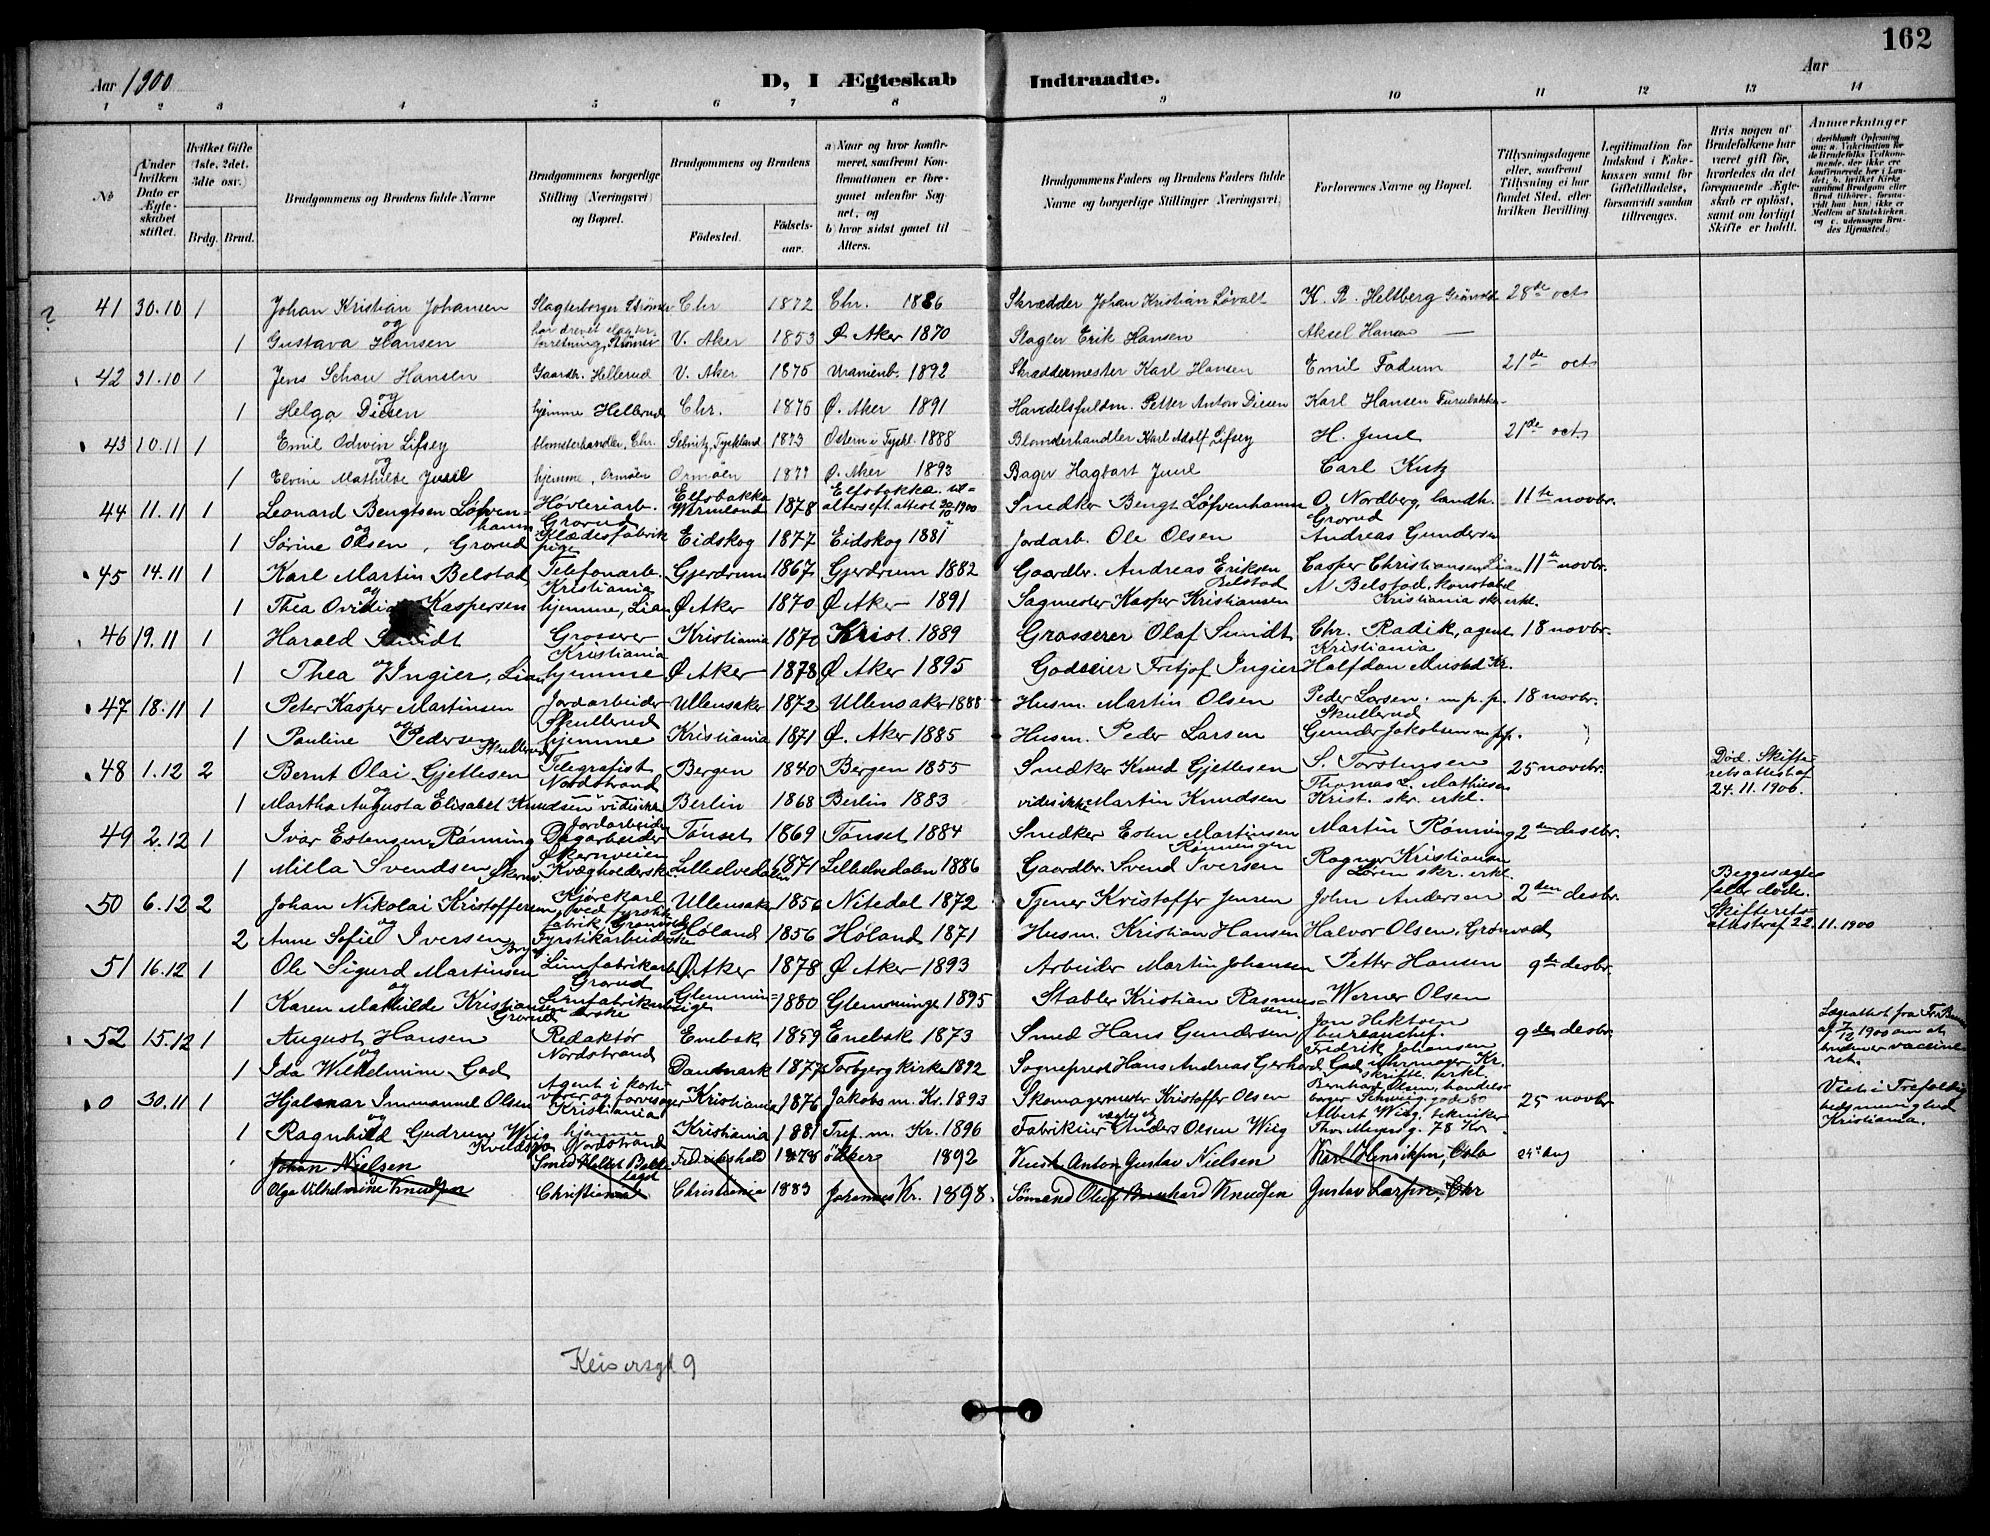 162
Aar 1900
D, I Ægteskab Indtraadte.
Aar
1 2 3 4 5 6 7 8 9 10 11 12 13 14
№
Under hvilken Dato er Ægteskabet stiftet.
Hvilket Gifte (1ste, 2det, 3dte osv.)
Brdg. Brud.
Brudgommens og Brudens fulde Navne
Brudgommens borgerlige Stilling (Næringsvei) og Bopæl.
Brudgommens og Brudens
Fødested. Fødselsaar.
a) Naar og hvor konfirmeret, saafremt Konfirmationen er foregaaet udenfor Sognet, og
b) hvor sidst gaaet til Alters.
Brudgommens Faders og Brudens Faders fulde Navne og borgerlige Stillinger (Næringsvei)
Forlovernes Navne og Bopæl.
Tillysningsdagene eller, saafremt Tillysning ei har fundet Sted, efter hvilken Bevilling.
Legitimation for Indskud i Enkekassen samt for Giftetilladelse, forsaavidt saadan tiltrænges.
Hvis nogen af Brudefolkene har været gift før, hvorledes da det foregaaende Ægteskab er opløst, samt om lovligt Skifte er holdt.
Anmærkninger
(deriblandt Oplysning om: a. Vakcination for de Brudefolks Vedkommende, der ikke ere konfirmerede her i Landet; b. hvilket Kirkesamfund Brudgom eller Brud tilhører, forsaavidt han (hun) ikke er Medlem af Statskirken, og c. udensogns Brudes Hjemsted.)
? 41 30.10 1 Johan Kristian Johansen Slagterborger Strømsv Chr 1872 Chr. 1886 Skrædder Johan Kristian Løvalt K. R. Heltberg Grünvold 28de oct
og
1 Gustava Hansen har drevet slagterforretning, Strømsv V. Aker 1853 Ø Aker 1870 Slagter Erik Hansen Aksel Hansen —
42 31.10 1 Jens Schau Hansen Gaardbr. Hellerud V. Aker 1875 Uranienb. 1892 Skræddermester Karl Hansen Emil Fadum 21de oct
og
1 Helga Diesen hjemme Hellerud Chr. 1875 Ø. Aker 1891 Handelsfuldm. Petter Anton Diesen Karl Hansen Furubakken
43 10.11 1 Emil Edwin Lifsey blomsterhandler, Chr. Sebnitz, Tyskland 1873 Ostern i Tyskl. 1888 Blomsterhandler Karl Adolf Lifsey H. Juul 21de oct
og
1 Elvine Mathilde Juul hjemme, Ormøen Ormøen 1877 Ø. Aker 1893 Bager Hagbart Juul Carl Kutz
44 11.11 1 Leonard Bengtsen Løfvenhamn Høvleriarb. Grorud Elfsbakka Wermland 1878 Elfsbakka til alters eft. attest 20/10 1900 Snedker Bengt Løfvenhamn O. Nordberg, landh. Grorud 11te novbr.
og
1 Sørine Olsen, Grorud Klædesfabrikpige Eidskog 1877 Eidskog 1881 Jordarb. Ole Olsen Andreas Gundersen
45 14.11 1 Karl Martin Belstad Telefonarb. Kristiania Gjerdrum 1867 Gjerdrum 1882 Gaardbr. Andreas Eriksen Belstad Casper Christiansen Lian 11te novbr.
og
1 Thea Ovidia Kaspersen hjemme, Lian Ø Aker 1870 Ø Aker 1891 Sagmester Kasper Kristiansen A Belstad, konstabel Kristiania skr. erkl.
46 19.11 1 Harald Smidt Grosserer Kristiania Kristiania 1870 Krist. 1889 Grosserer Olaf Smidt Chr. Radik, agent Kristiania 18 novbr.
og
1 Thea Ingier, Lian hjemme Ø Aker 1878 Ø Aker 1895 Godseier Fretjof Ingier Halfdan Mustad Kr.
47 18.11 1 Peter Kasper Martinsen Jordarbeider Skullerud Ullensaker 1872 Ullensaker 1888 Husm. Martin Olsen Peder Larsen m. p. p. Skullerud 18 novbr.
og
1 Pauline Pedersen Skullerud hjemme Kristiania 1871 Ø. Aker 1885 Husm. Peder Larsen Gunder Jakobsen m.p.p.
48 1.12 2 Bernt Olai Gjetlesen Telegrafist Nordstrand Bergen 1840 Bergen 1855 Snedker Knud Gjetlesen S. Torstensen 25 novbr. Død. Skifteretsattest af 24.11.1900.
og
1 Martha Augusta Elisabet Knudsen vides ikke Berlin 1868 Berlin 1883 vides ikke Martin Knudsen Thomas L. Mathiesen Krist. skr. erkl.
49 2.12 1 Ivar Estensen Rønning Jordarbeider Dagarbeider Ekernveien Tønset 1869 Tønset 1884 Snedker Esten Martinsen Rønningen Martin Rønning 2den desbr.
1 Milla Svendsen Ekernv. Kvægholderske Lilleelvedalen 1871 Lilleelvedalen 1886 Gaardbr. Svend Iversen Ragner Kristiansen Løren skr. erkl.
50 6.12 2 Johan Nikolai Kristoffersen Kjørekarl ved fyrstikfabrik, Grønvold Ullensaker 1856 Nitedal 1872 Tjener Kristoffer Jensen John Andersen 2den desbr. Begges ægtefæller døde. Skifteretsattest af 22.11.1900
og
2 Anne Sofie Iversen Bryn Fyrstikarbeiderske Høland 1856 Høland 1871 Husm. Kristian Hansen Halvor Olsen, Grønvold
51 16.12 1 Ole Sigurd Martinsen Limfabrikarb. Grorud Ø. Aker 1878 Ø Aker 1893 Arbeider Martin Johansen Petter Hansen 9de desbr.
og
1 Karen Mathilde Kristiansen Grorud Limfabrikarbeiderske Glemminge 1880 Glemminge 1895 Stabler Kristian Rasmussen Werner Olsen
52 15.12 1 August Hansen Redaktør Nordstrand Enebak 1859 Enebak 1873 Smed Hans Gundersen Jon Hektoen bureauchef. 9de desbr. Lægeattest fra af 7/12 1900 om at bruden er vaccineret.
og
1 Ida Wilhelmine Gad Danmark 1877 Torbjerg kirke 1892 Sogneprest Hans Andreas Gerhard Gad Fredrik Johansen uhrmager Kr. skriftl. erkl.
0 30.11 1 Hjalmar Immanuel Olsen Agent i kortevarer og farvesager Kristiania Kristiania 1876 Jakobs m. Kr. 1893 Skomagermester Kristoffer Olsen Bernhard Olsen, handelsbager Schweigg.gade 80 25 novbr Viet i Trefoldighedsmenighed Kristiania.
og
1 Ragnhild Gudrun Wiig Kveldsro hjemme Nordstrand Kristiania 1881 Tref. m. Kr. 1896 Fabrikeier Anders Olsen Wiig Albert Wiig, tekniker Thv. Meyersg. 78 Kr.
Johan Nielsen Smed Fredrikshald 1878 1892 Kusk Anton Gustav Nielsen Karl Henriksen, Oslo 24' Aug
Olga Vilhelmine Knudsen Christiania Christiania 1883 Johannes Kr. 1898. Sømand Oluf Bernhard Knudsen Gustav Larsen, Chr
Keisersgt 9